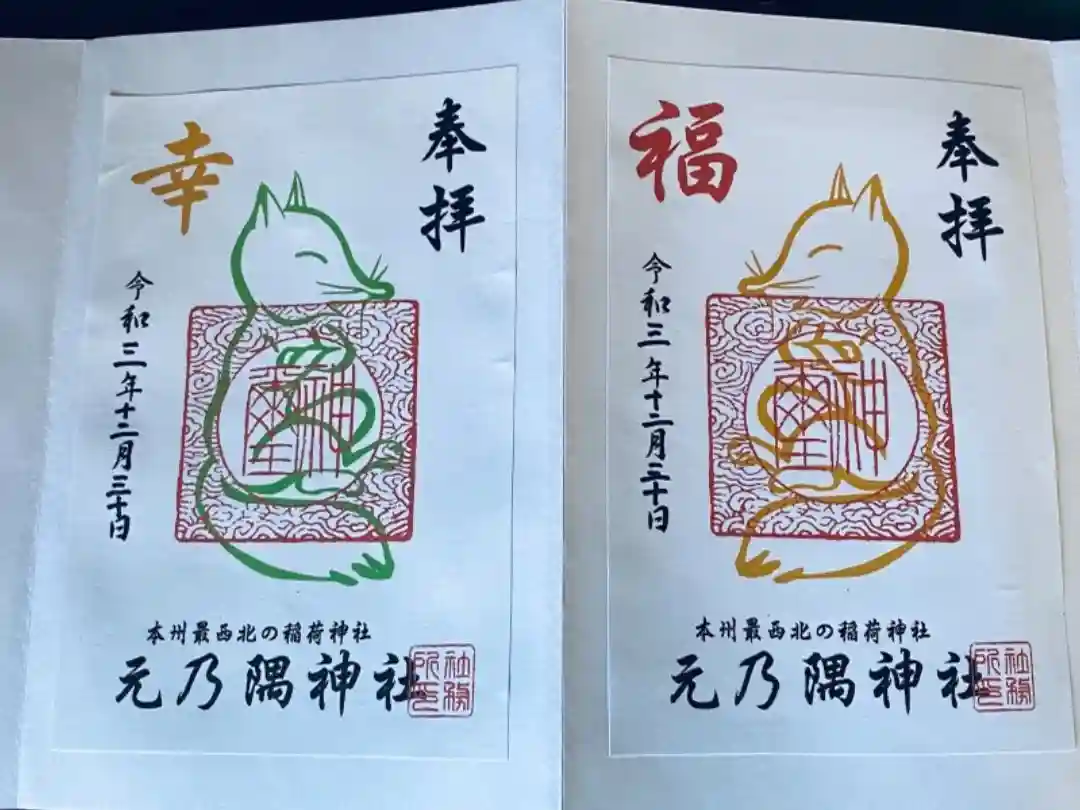 奉拝
幸
令和三年十二月三十日
神璽
本州最西北の稲荷神社
元乃隅神社
社務所印
奉拝
福
令和三年十二月三十日
神璽
本州最西北の稲荷神社
元乃隅神社
社務所印